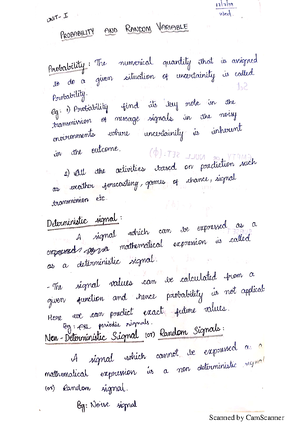 UNIT-I
PROBABILITY AND RANDOM VARIABLE
Probability: The numerical quantity that is assigned
to do a given situation of uncertainity is called
Probability.
Eg: 1) Probability find its key role in the
transmission of message signals in the noisy
environments where uncertainity is inherent
in the outcome.
2) All the activities based on prediction such
as weather forecasting, games of chance, signal
transmission etc.
Deterministic signal:
A signal which can be expressed as a
mathematical expression is called
as a deterministic signal.
- The signal values can be calculated from a
given function and hence probability is not applicab
Here we can predict exact future values.
Eg: periodic signals.
Non-Deterministic Signal (or) Random Signals:
A signal which cannot be expressed a
mathematical expression is a non deterministic signal
(or) Random signal.
Eg: Noise signal
Scanned by CamScanner